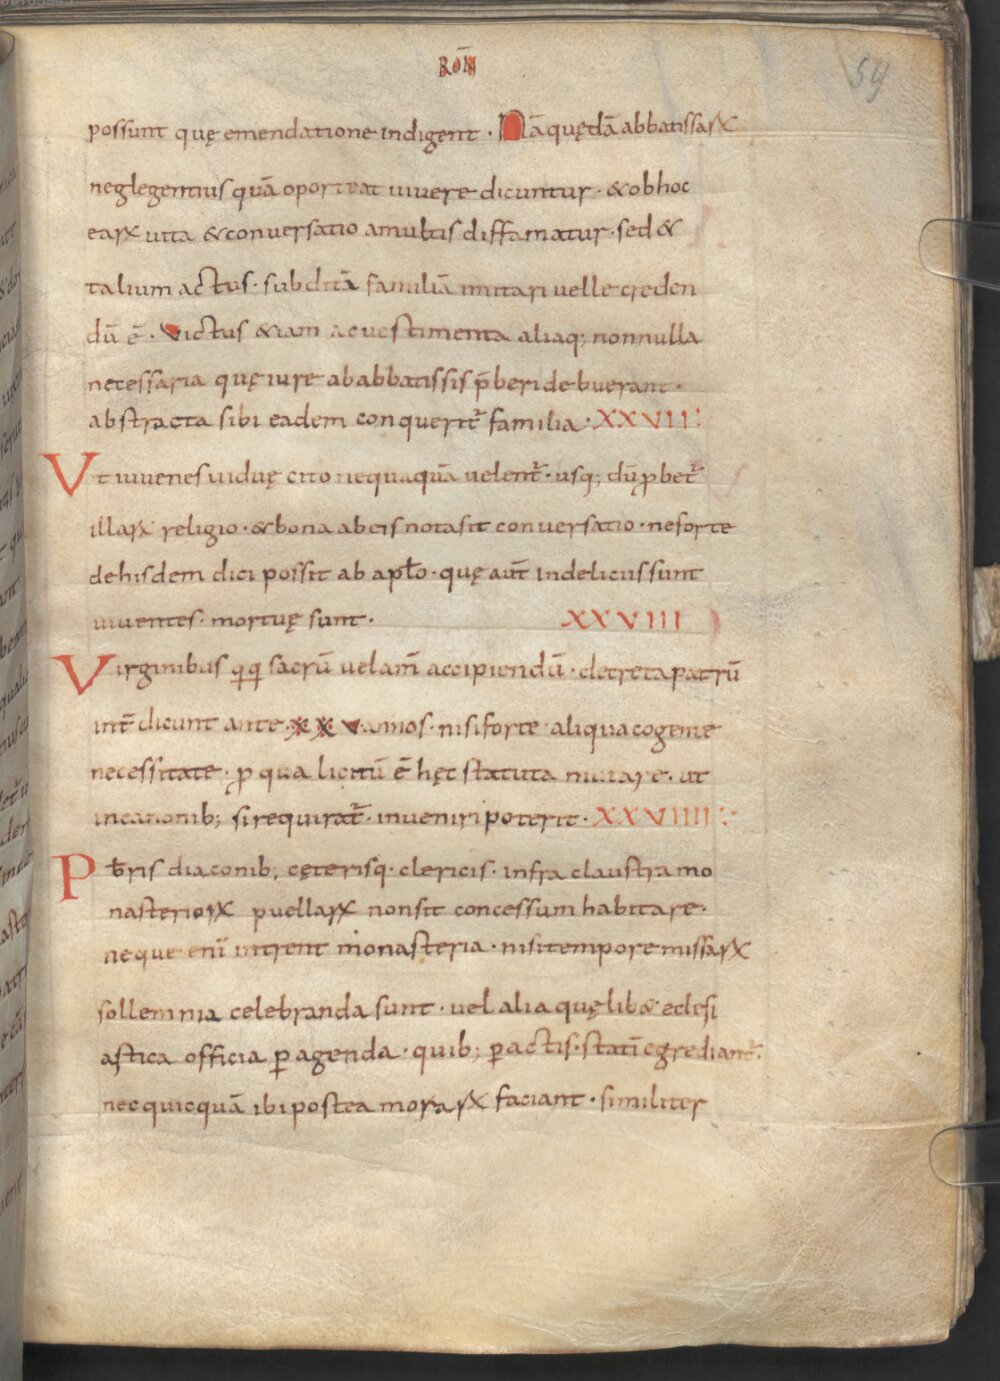 RōN
59
possunt quę emendatione indigent · Nā quędā abbatissaꝝ
neglegentius quā oporteat uiuere dicuntur · & ob hoc
earꝝ uita & conuersatio a multis diffamatur · sed &
talium actus · subditā familiā imitari uelle creden
dū ē · Victus &iam ac uestimenta aliaq; nonnulla
necessaria quę iure ab abbatissis p̄beri debuerant ·
abstracta sibi eadem conquerit᷑ familia · XXVII:
Vt iuuenes uiduę cito nequaquā uelent᷑ · usq; dū ꝓbet᷑
illaꝝ religio · & bona ab eis nota sit conuersatio · ne forte
de hisdem dici possit ab aptō · quę aut̄ in delicus sunt
uiuentes · mortuę sunt · XXVIII
Virginibus qiqi sacrū uelam̄ accipiendū · decreta patrū
int̄ dicunt ante XXV annos · nisi forte aliqua cogente
necessitate · ꝓ qua licitū ē hęc statuta mutare · ut
in canonib; si requirat᷑ · inueniri poterit · XXVIIII:
Pb̄ris diaconib; cęterisq· clericis · infra claustra mo
nasterioꝝ puellaꝝ non sit concessum habitare ·
neque enī intrent monasteria · nisi tempore missaꝝ
sollemnia celebranda sunt · uel alia quęlib& eclesi
astica officia ꝑagenda · quib; ꝑactis · statī egrediant᷑ ·
nec quicquā ibi postea moraꝝ faciant · similiter